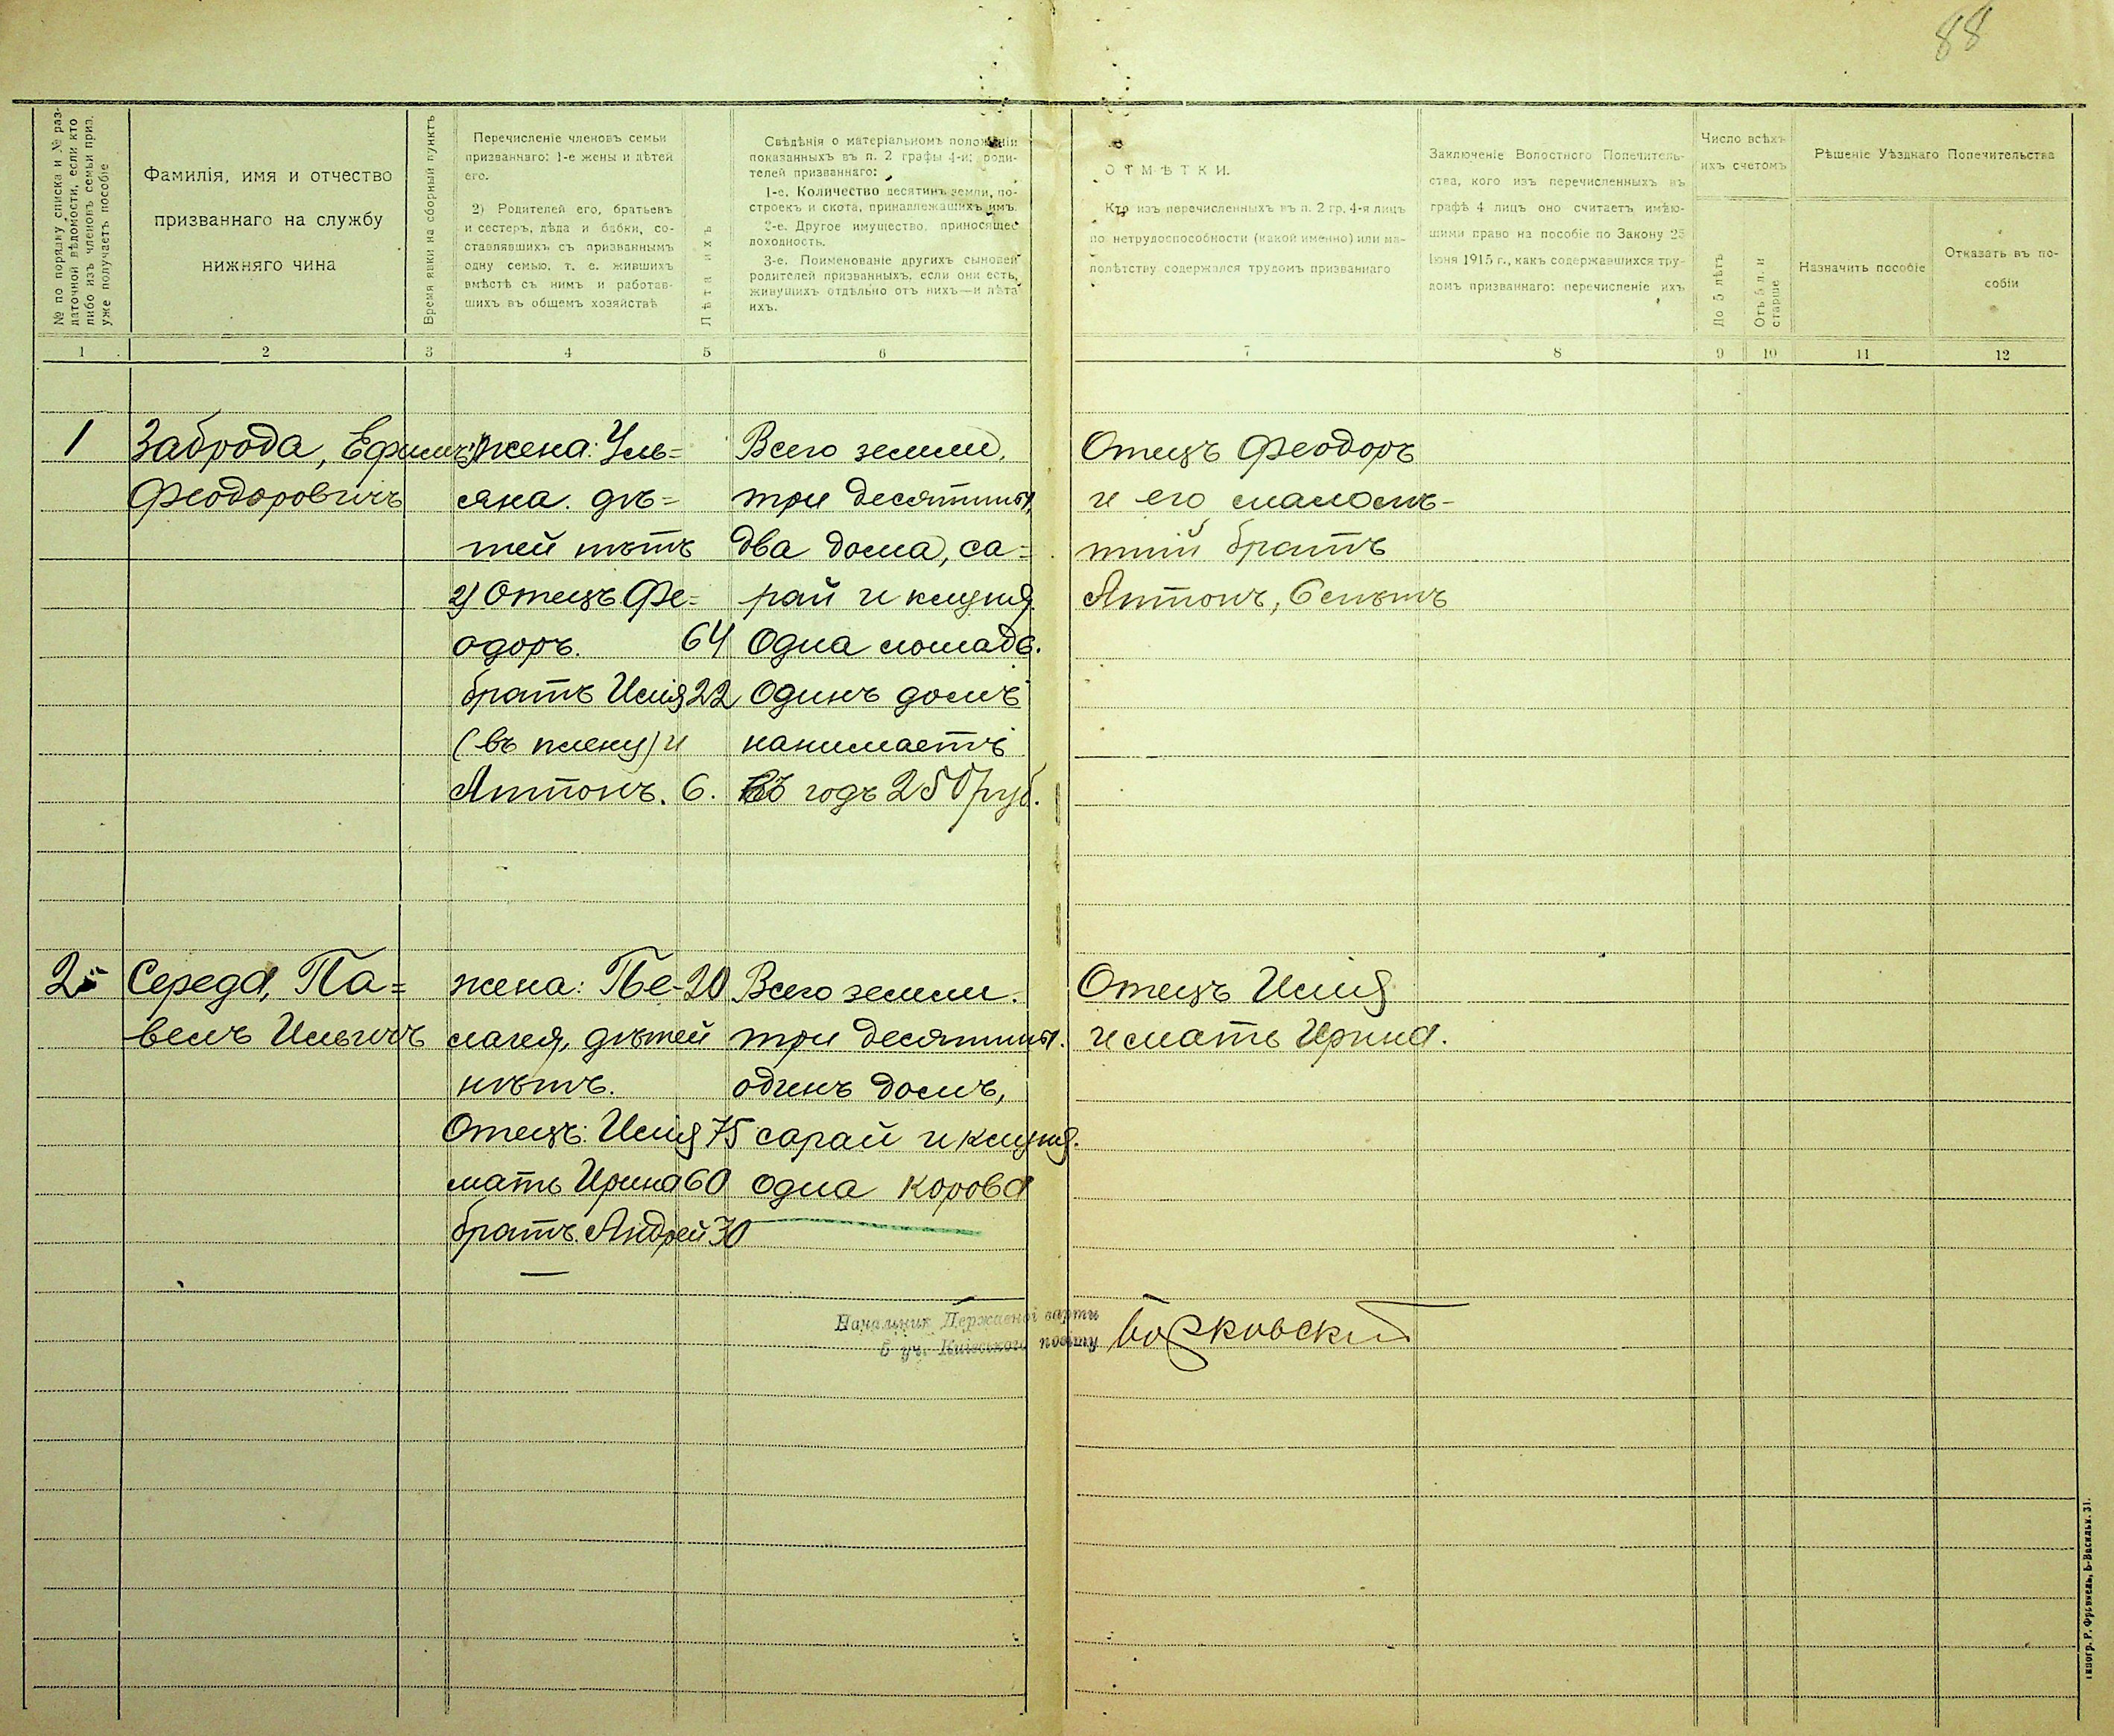 88
№ по порядку списка и № раз-
даточной вѣдомости, если кто
либо изъ членовъ семьи приз.
уже получаетъ пособіе
Фамилія, имя и отчество
призваннаго на службу
нижняго чина
Время явки на сборный пунктъ
Перечисленіе членовъ семьи
призваннаго: 1-е жены и дѣтей
его.
2) Родителей его, братьевъ
и сестеръ, дѣда и бабки, со-
ставлявшихъ съ призваннымъ
одну семью, т. е. жившихъ
вмѣстѣ съ нимъ и работав-
шихъ въ общемъ хозяйствѣ
Лѣта ихъ
Свѣдѣнія о матеріальномъ положеніи
показанныхъ въ п. 2 графы 4-й; роди-
телей призваннаго:
1-е. Количество десятинъ земли, по-
строекъ и скота, принадлежащихъ имъ.
2-е. Другое имущество, приносящее
доходность.
3-е. Поименованіе другихъ сыновей
родителей призванныхъ, если они есть,
живущихъ отдѣльно отъ нихъ—и лѣта
ихъ.
ОТМѢТКИ.
Кто изъ перечисленныхъ въ п. 2 гр. 4-я лицъ
по нетрудоспособности (какой именно) или ма-
лолѣтству содержался трудомъ призваннаго
Заключеніе Волостного Попечитель-
ства, кого изъ перечисленныхъ въ
графѣ 4 лицъ оно считаетъ имѣю-
щими право на пособіе по Закону 25
Іюня 1915 г., какъ содержавшихся тру-
домъ призваннаго: перечисленіе ихъ
Число всѣхъ
ихъ счетомъ
До 5 лѣтъ
Отъ 5 л. и
старше
Рѣшеніе Уѣзднаго Попечительства
Назначить пособіе
Отказать въ по-
собіи
1 2 3 4 5 6 7 8 9 10 11 12
1 Заброда, Ефимъ 1) жена: Уль= Всего земли, Отецъ Феодоръ
Феодоровичъ яна. дѣ= три десятины, и его малолѣ-
тей нѣтъ два дома, са= тній братъ
2) Отецъ Фе= рай и клуня Антонъ, 6 лѣтъ
одоръ. 64 Одна лошадь.
братъ Илія 22 Одинъ домъ
(въ плену) и нанимаетъ
Антонъ. 6. въ годъ 250 руб.
2 Середа, Па= жена: Пе- 20 Всего земли. Отецъ Илія
велъ Ильичъ лагея, дѣтей три десятины. и мать Ирина.
нѣтъ. одинъ домъ,
Отецъ: Илія 75 сарай и клуня.
мать Ирина 60 одна корова
братъ. Андрей 30
Начальник Державної варти
Київського повіту
Типогр. Р. Френкель, Б-Васильк. 31.